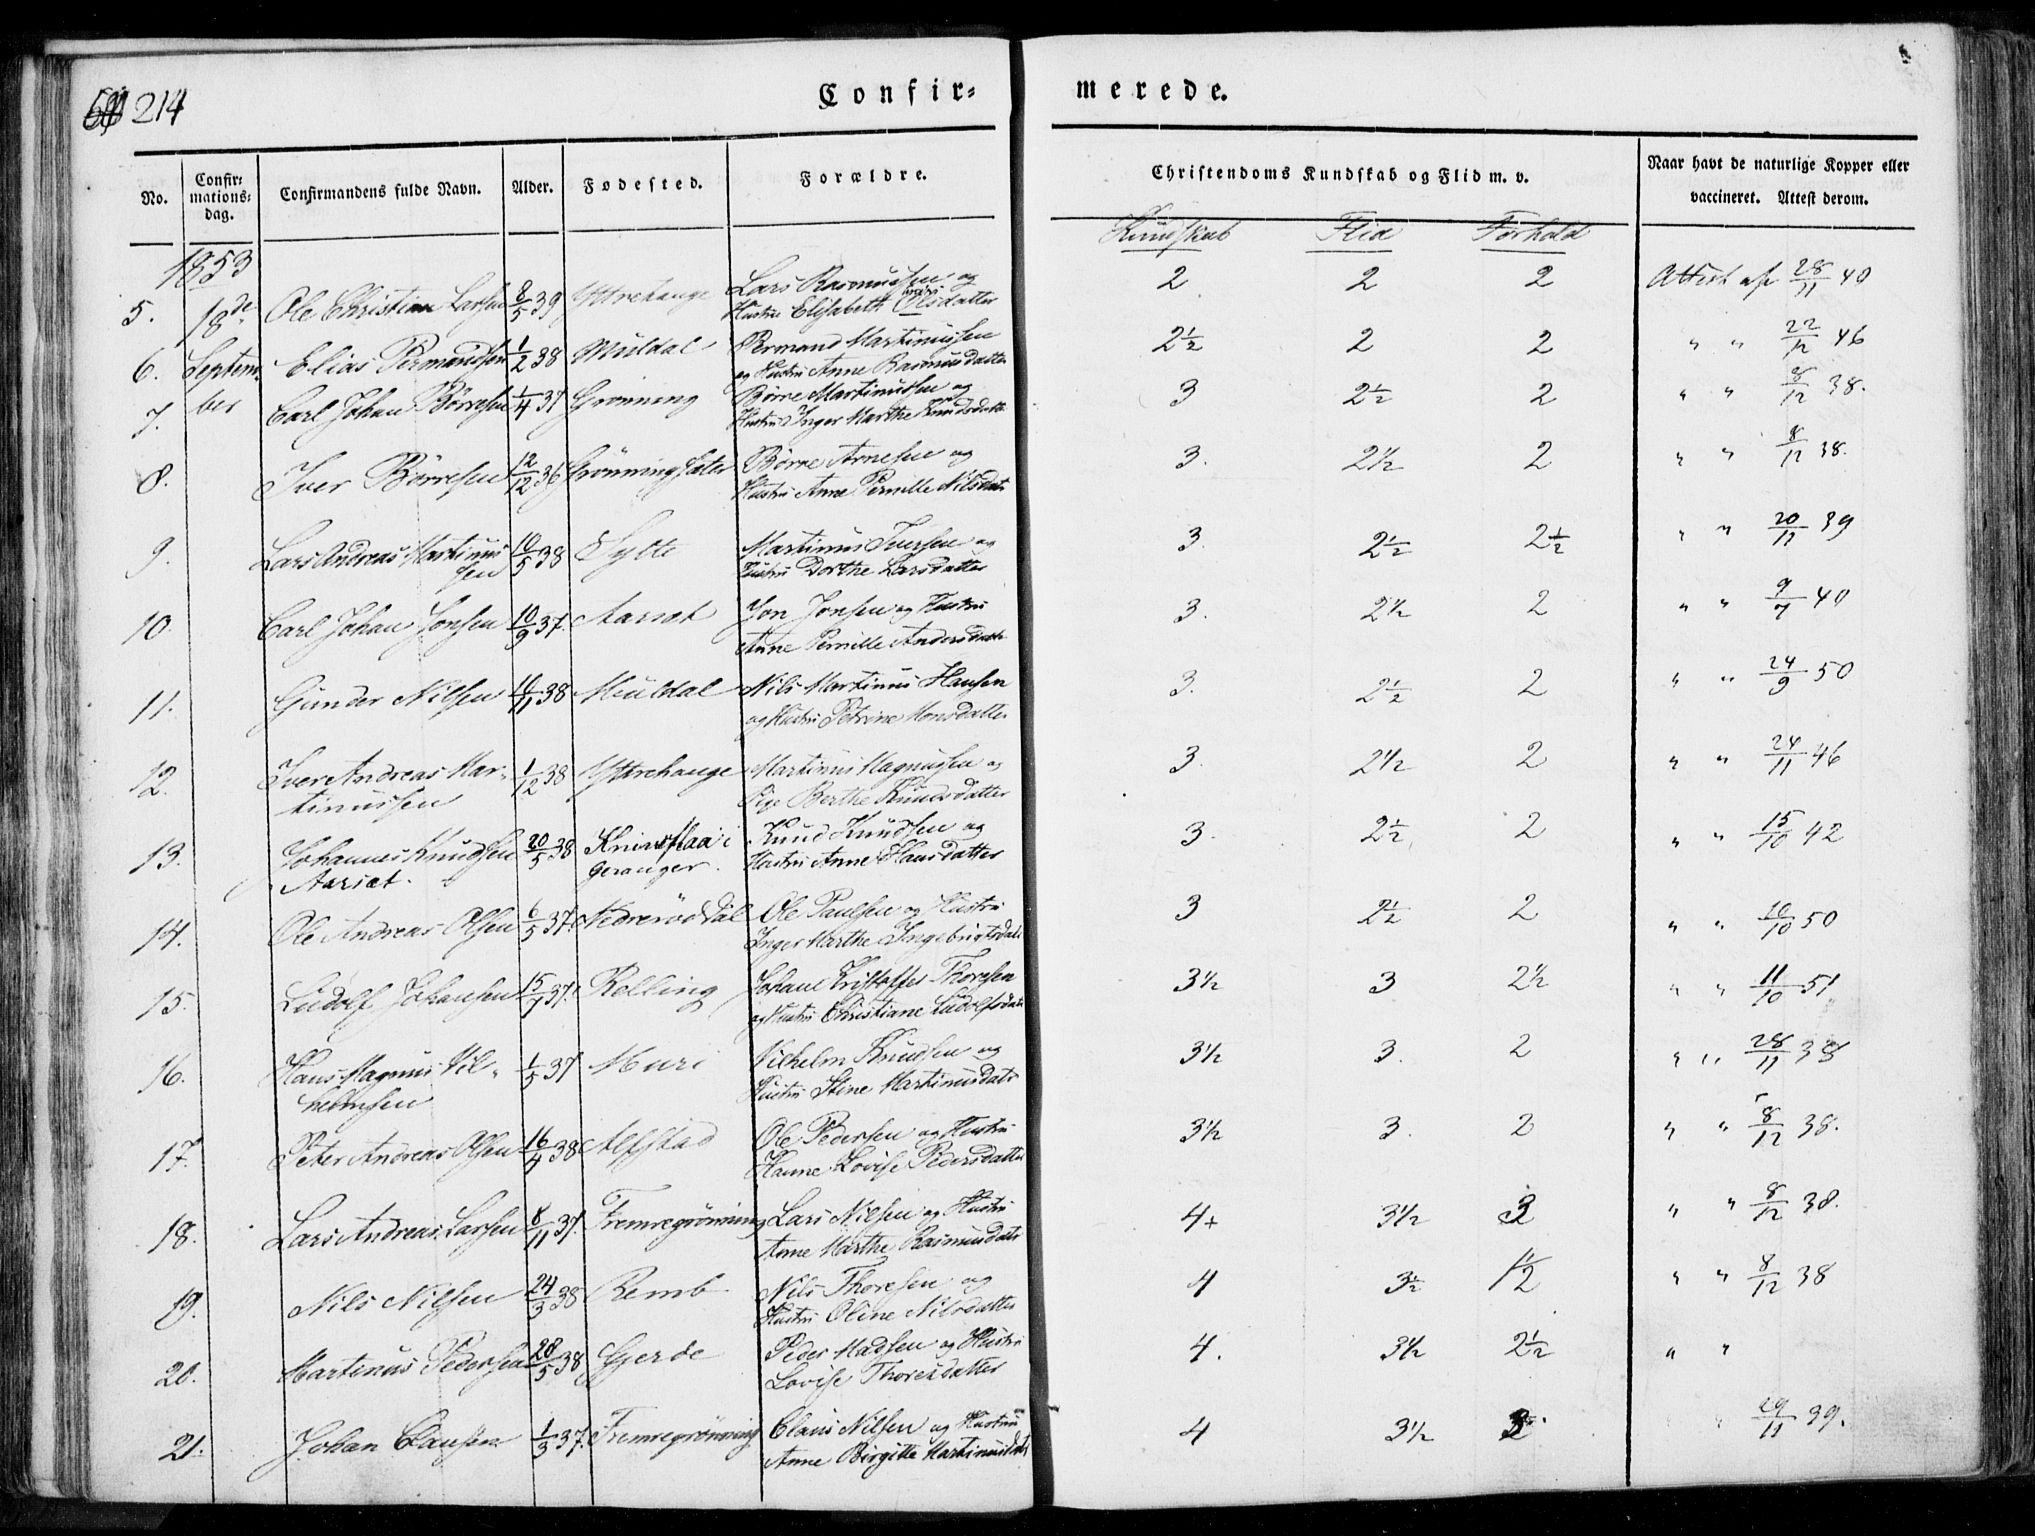 214
Confir=
merede.
No.
Confir=
mations=
dag.
Confirmandens fulde Navn.
Alder.
Fødested.
Forældre.
Christendoms Kundskab og Flid m. v.
Naar havt de naturlige Kopper eller
vaccineret. Attest derom.
Kundskab Flid Forhold
1853
5. 18de Ole Christian Larsen 8/5 39 Yttrehauge Lars Rasmussen og
Hustru Elisabeth Olsdatter 2 2 2 Attest af 28/11 40
6. Septem- Elias Permandsen 1/2 38 Muldal Permand Martinussen
og Hustru Anne Rasmusdatter 2½ 2 2 " " 22/12 46
7. ber Carl Johan Børresen 1/4 37 Grønning Børre Martinussen og
Hustru Inger Marthe Knudsdatt 3 2½ 2 " " 8/12 38.
8. Iver Børresen 12/12 36 Grønningsæter Børre Arnesen og
Hustru Anne Pernille Nilsdatr 3. 2½ 2 " " 8/12 38.
9. Lars Andreas Martinus
sen 10/5 38 Sylte Martinus Iversen og
Hustru Dorthe Larsdatter 3. 2½ 2½ " " 20/11 39
10. Carl Johan Jonsen 10/9 37. Aarsæt Jon Jonsen og Hustru
Anne Pernille Andersdatt 3. 2½ 2 " " 9/7 40
11. Gunder Nilsen 10/11 38 Muldal Nils Martinus Hansen
og Hustru Petrine Monsdatter 3. 2½ 2 " " 24/9 50
12. Iver Andreas Mar-
tinussen 1/12 38 Yttrehauge Martinus Magnussen og
Pige Berthe Knudsdatter 3. 2½ 2 " " 24/11 46
13. Johannes Knudsen
Aarsæt. 20/5 38 Knivsflaa i
Geranger. Knud Knudsen og
Hustru Anne Hansdatter 3. 2½ 2 " " 15/10 42
14. Ole Andreas Olsen 6/5 37 Nedrerøddal Ole Paulsen og Hustru
Inger Marthe Ingebrigtsdatt 3 2½ 2 " " 10/10 50
15. Ludolf Johansen 15/7 37. Relling Johan Kristoffer Thoresen
og Hustru Christiane Ludolfsdatr 3½ 3 2½ " " 11/10 51
16. Hans Magnus Vil-
helmsen 1/5 37 Muri Vilhelm Knudsen og
Hustru Stine Martinusdatr 3½ 3. 2 " " 28/11 38
17. Peter Andreas Olsen 16/4 38 Alfstad Ole Pedersen og Hustru
Hanne Lovise Pedersdatter 3½ 3. 2 " " 8/12 38.
18. Lars Andreas Larsen 8/11 37. Fremregrønning Lars Nilsen og Hustru
Anne Marthe Rasmusdatr 4+ 3½ 3 " " 8/12 38.
19. Nils Nilsen 24/3 38 Remb Nils Thoresen og
Hustru Oline Nilsdatter 4 3½ 1½ " " 8/12 38
20. Martinus Pedersen 28/5 38 Gjerde Peder Madsen og Hustru
Lovise Thoresdatter 4. 3½ 2½ " "
21. Johan Clausen 1/3 37. Fremregrønning Claus Nilsen og Hustru
Anne Birgitte Martinusdatr 4 3½ " 29/11 39.